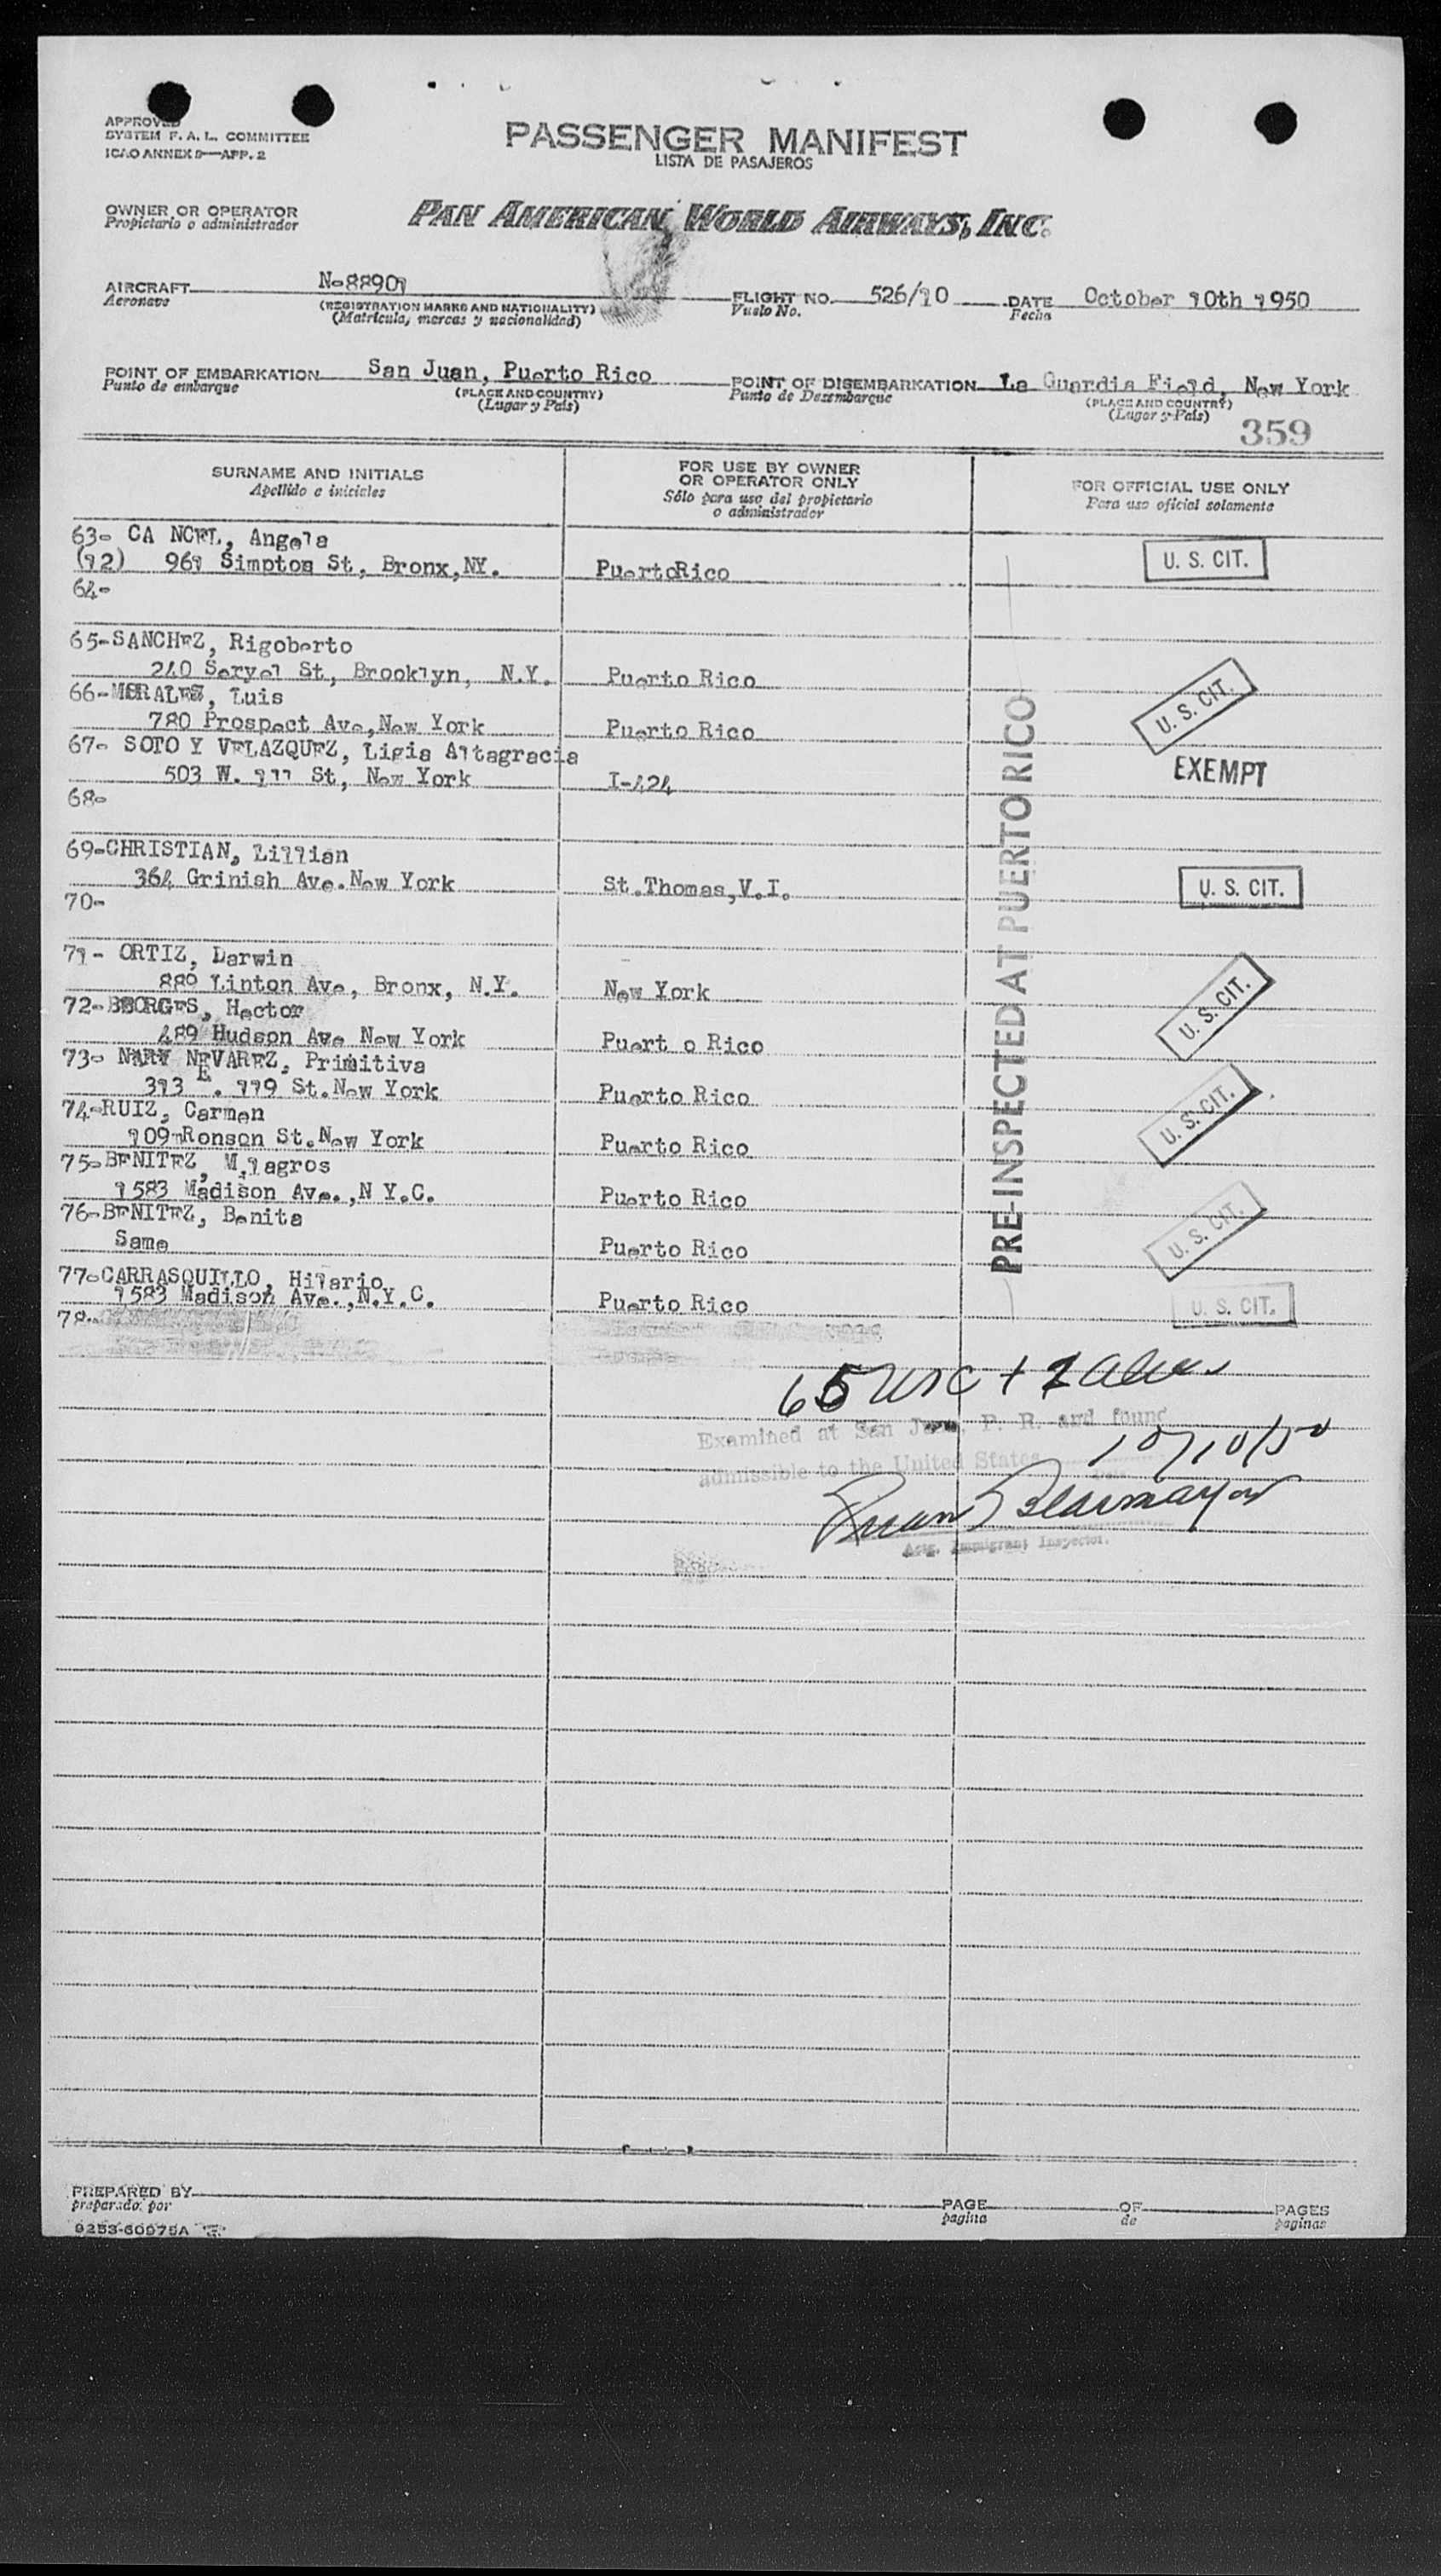 APPROVED
SYSTEM F. A. L. COMMITTEE
ICAO ANNEX 9—APP. 2
PASSENGER MANIFEST
LISTA DE PASAJEROS
OWNER OR OPERATOR
Propietario o administrador
PAN AMERICAN WORLD AIRWAYS, INC.
AIRCRAFT N-88901 FLIGHT NO. 526/10 DATE October 10th 1950
Aeronave (REGISTRATION MARKS AND NATIONALITY) Vuelo No. Fecha
(Matrícula, marcas y nacionalidad)
POINT OF EMBARKATION San Juan, Puerto Rico POINT OF DISEMBARKATION La Guardia Field, New York
Punto de embarque (PLACE AND COUNTRY) Punto de Desembarque (PLACE AND COUNTRY)
(Lugar y País) (Lugar y País)
359
SURNAME AND INITIALS FOR USE BY OWNER OR OPERATOR ONLY FOR OFFICIAL USE ONLY
Apellido e iniciales Sólo para uso del propietario o administrador Para uso oficial solamente
63- CA NCEL, Angela
(12) 961 Simptos St, Bronx,NY. PuertoRico U. S. CIT.
64-
65-SANCHEZ, Rigoberto
240 Seryel St, Brooklyn, N.Y. Puerto Rico
66-MORALES, Luis U. S. CIT.
780 Prospect Ave,New York Puerto Rico
67- SOTO Y VELAZQUEZ, Ligia Altagracia
503 W. 111 St, New York I-424 EXEMPT
68-
69-CHRISTIAN, Lillian
364 Grinish Ave.New York St.Thomas,V.I. U. S. CIT.
70-
71- ORTIZ, Darwin
880 Linton Ave, Bronx, N.Y. New York
72-BORGES, Hector U. S. CIT.
489 Hudson Ave New York Puert o Rico
73- NEVAREZ, Primitiva
313 E. 119 St.New York Puerto Rico
74-RUIZ, Carmen U. S. CIT.
109 Ronson St.New York Puerto Rico
75-BENITEZ, Milagros
1583 Madison Ave.,N Y.C. Puerto Rico
76-BENITEZ, Benita U. S. CIT.
Same Puerto Rico
77-CARRASQUILLO, Hilario
1583 Madison Ave.,N.Y.C. Puerto Rico U. S. CIT.
78-
PRE-INSPECTED AT PUERTO RICO
65 USC + 1 alien
Examined at San Juan, P. R. and found
admissible to the United States 10/10/50
Actg. Immigrant Inspector.
PREPARED BY PAGE OF PAGES
preparado por pagina de paginas
9253-60975A